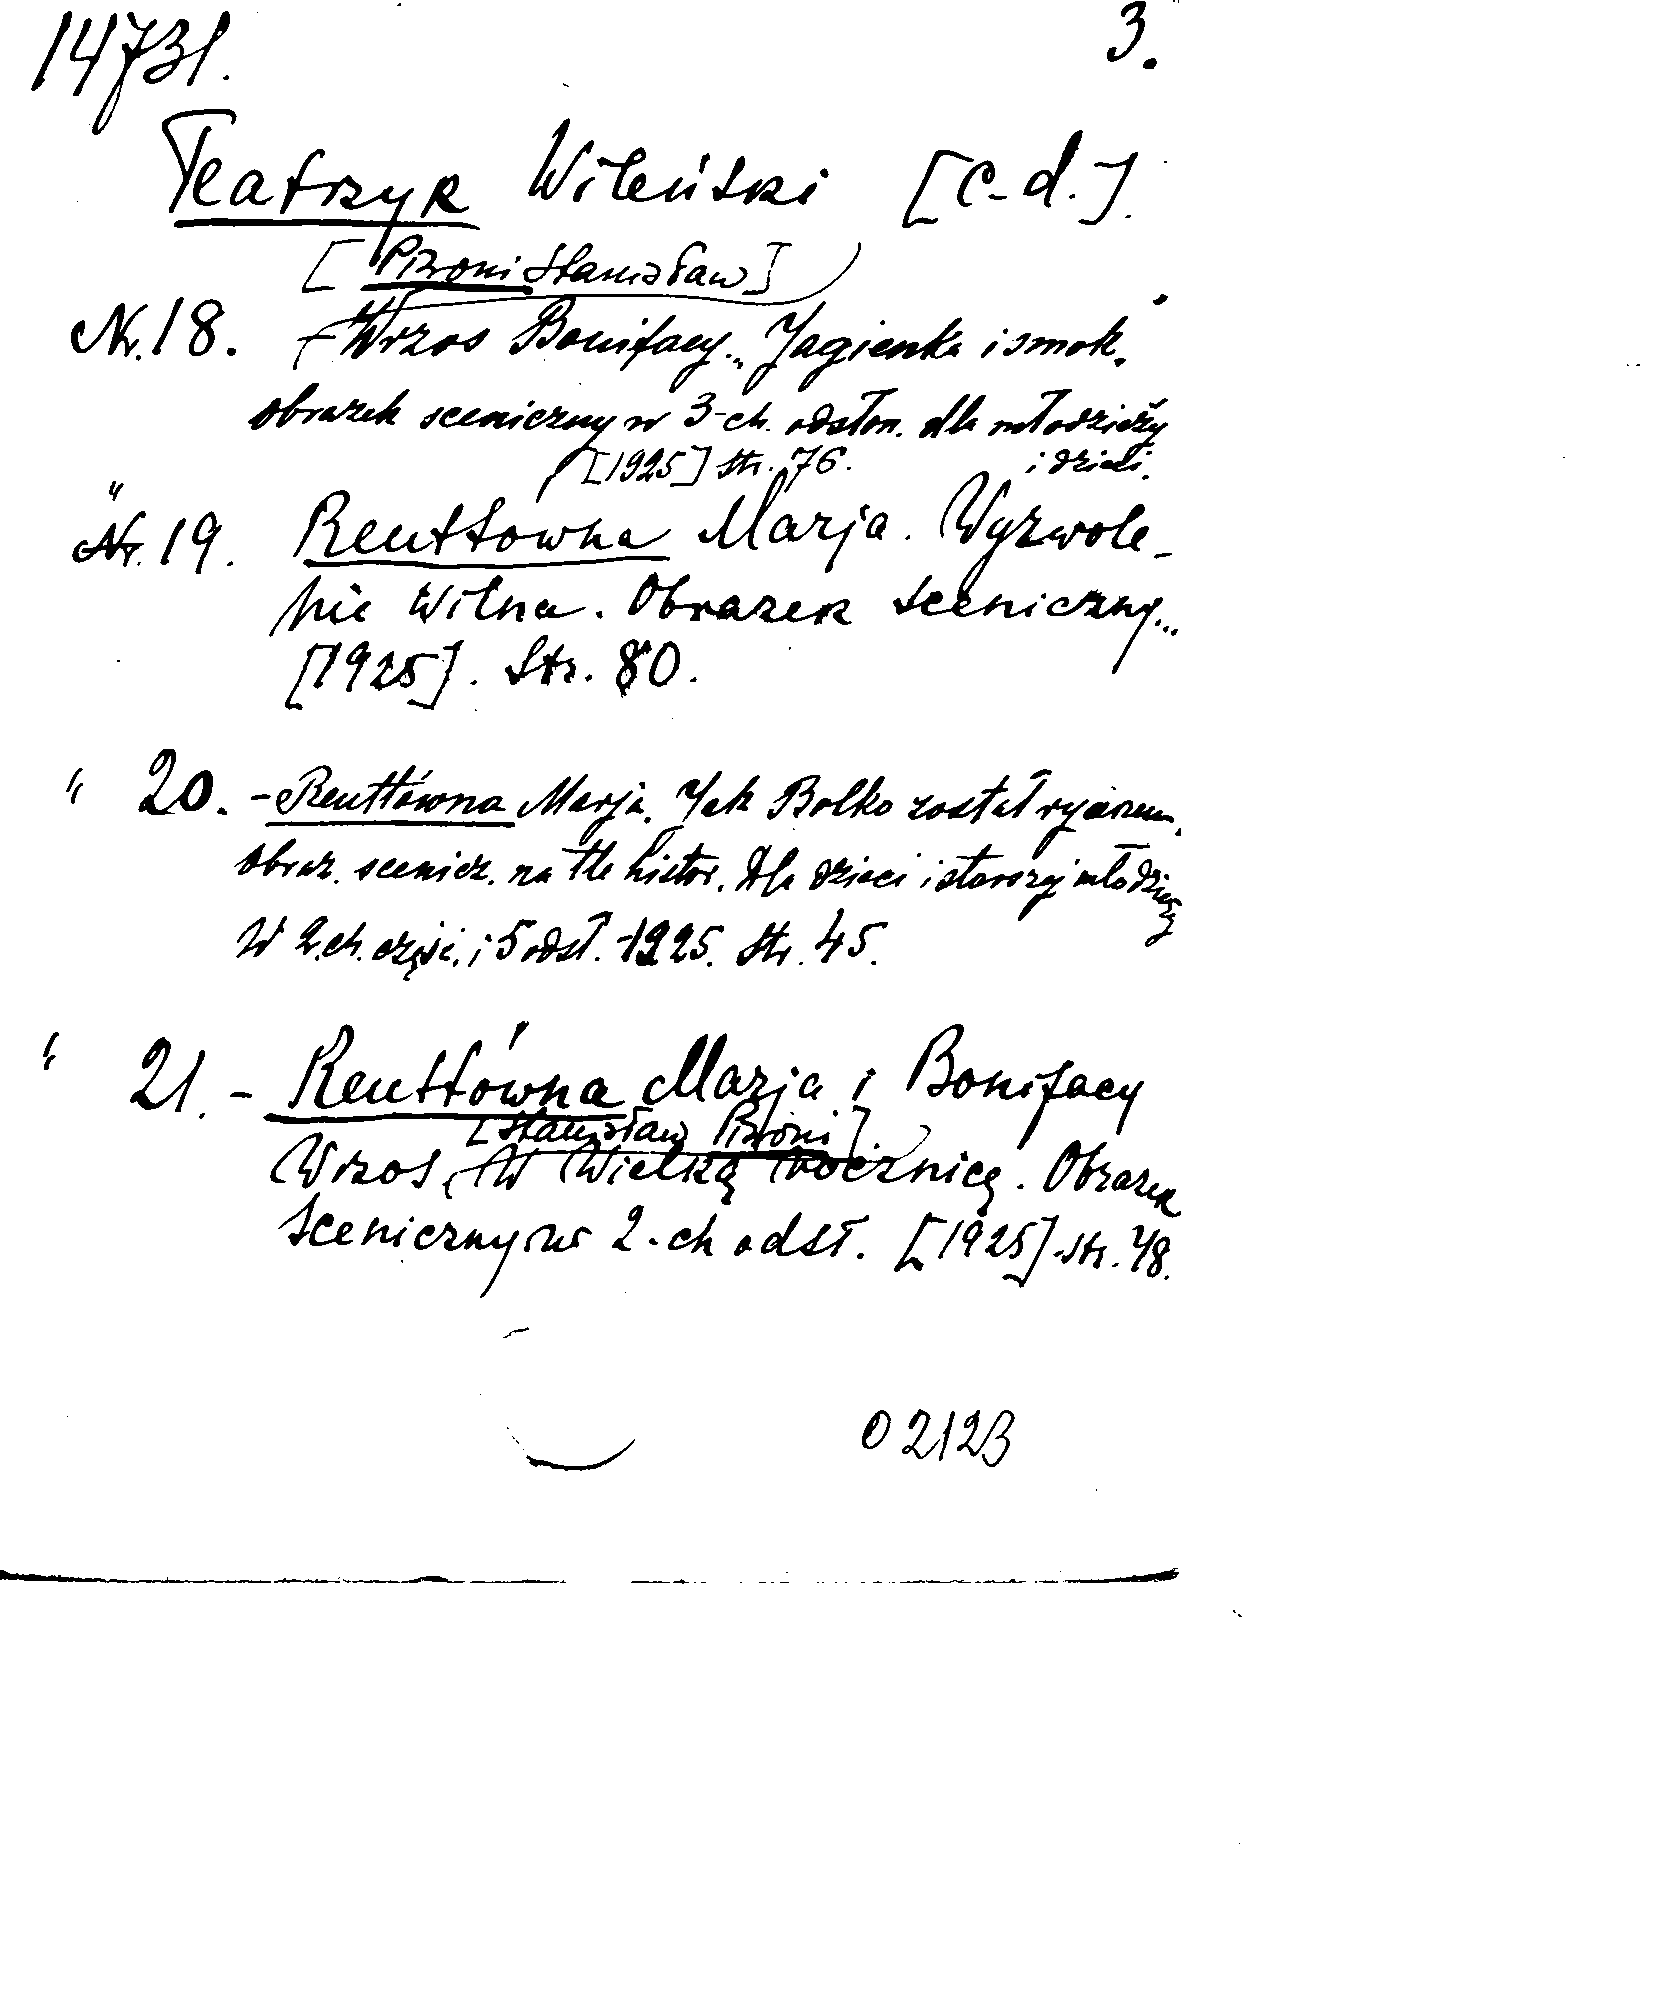 14731. 3.
Teatrzyk Wileński [c. d.].
[Pizoni Stanisław]
Nr. 18. Wrzos Bonifacy. Jagienka i smok.
obrazek sceniczny w 3-ch. odsłon. dla młodzieży
[1925] str. 76. i dzieci.
" Nr. 19. Reuttówna Marja. Wyzwole-
nie Wilna. Obrazek sceniczny...
[1925]. Str. 80.
" 20. - Reuttówna Marja. Jak Bolko został rycerzem.
obraz. scenicz. na tle histor. dla dzieci i starszej młodzieży
W 2.ch. częśc. i 5 odsł. 1925. Str. 45.
" 21. - Reuttówna Marja i Bonifacy
[Stanisław Pizoni].
Wrzos. W Wielką rocznicę. Obrazek
sceniczny w 2-ch odsł. [1925] str. 48.
02123